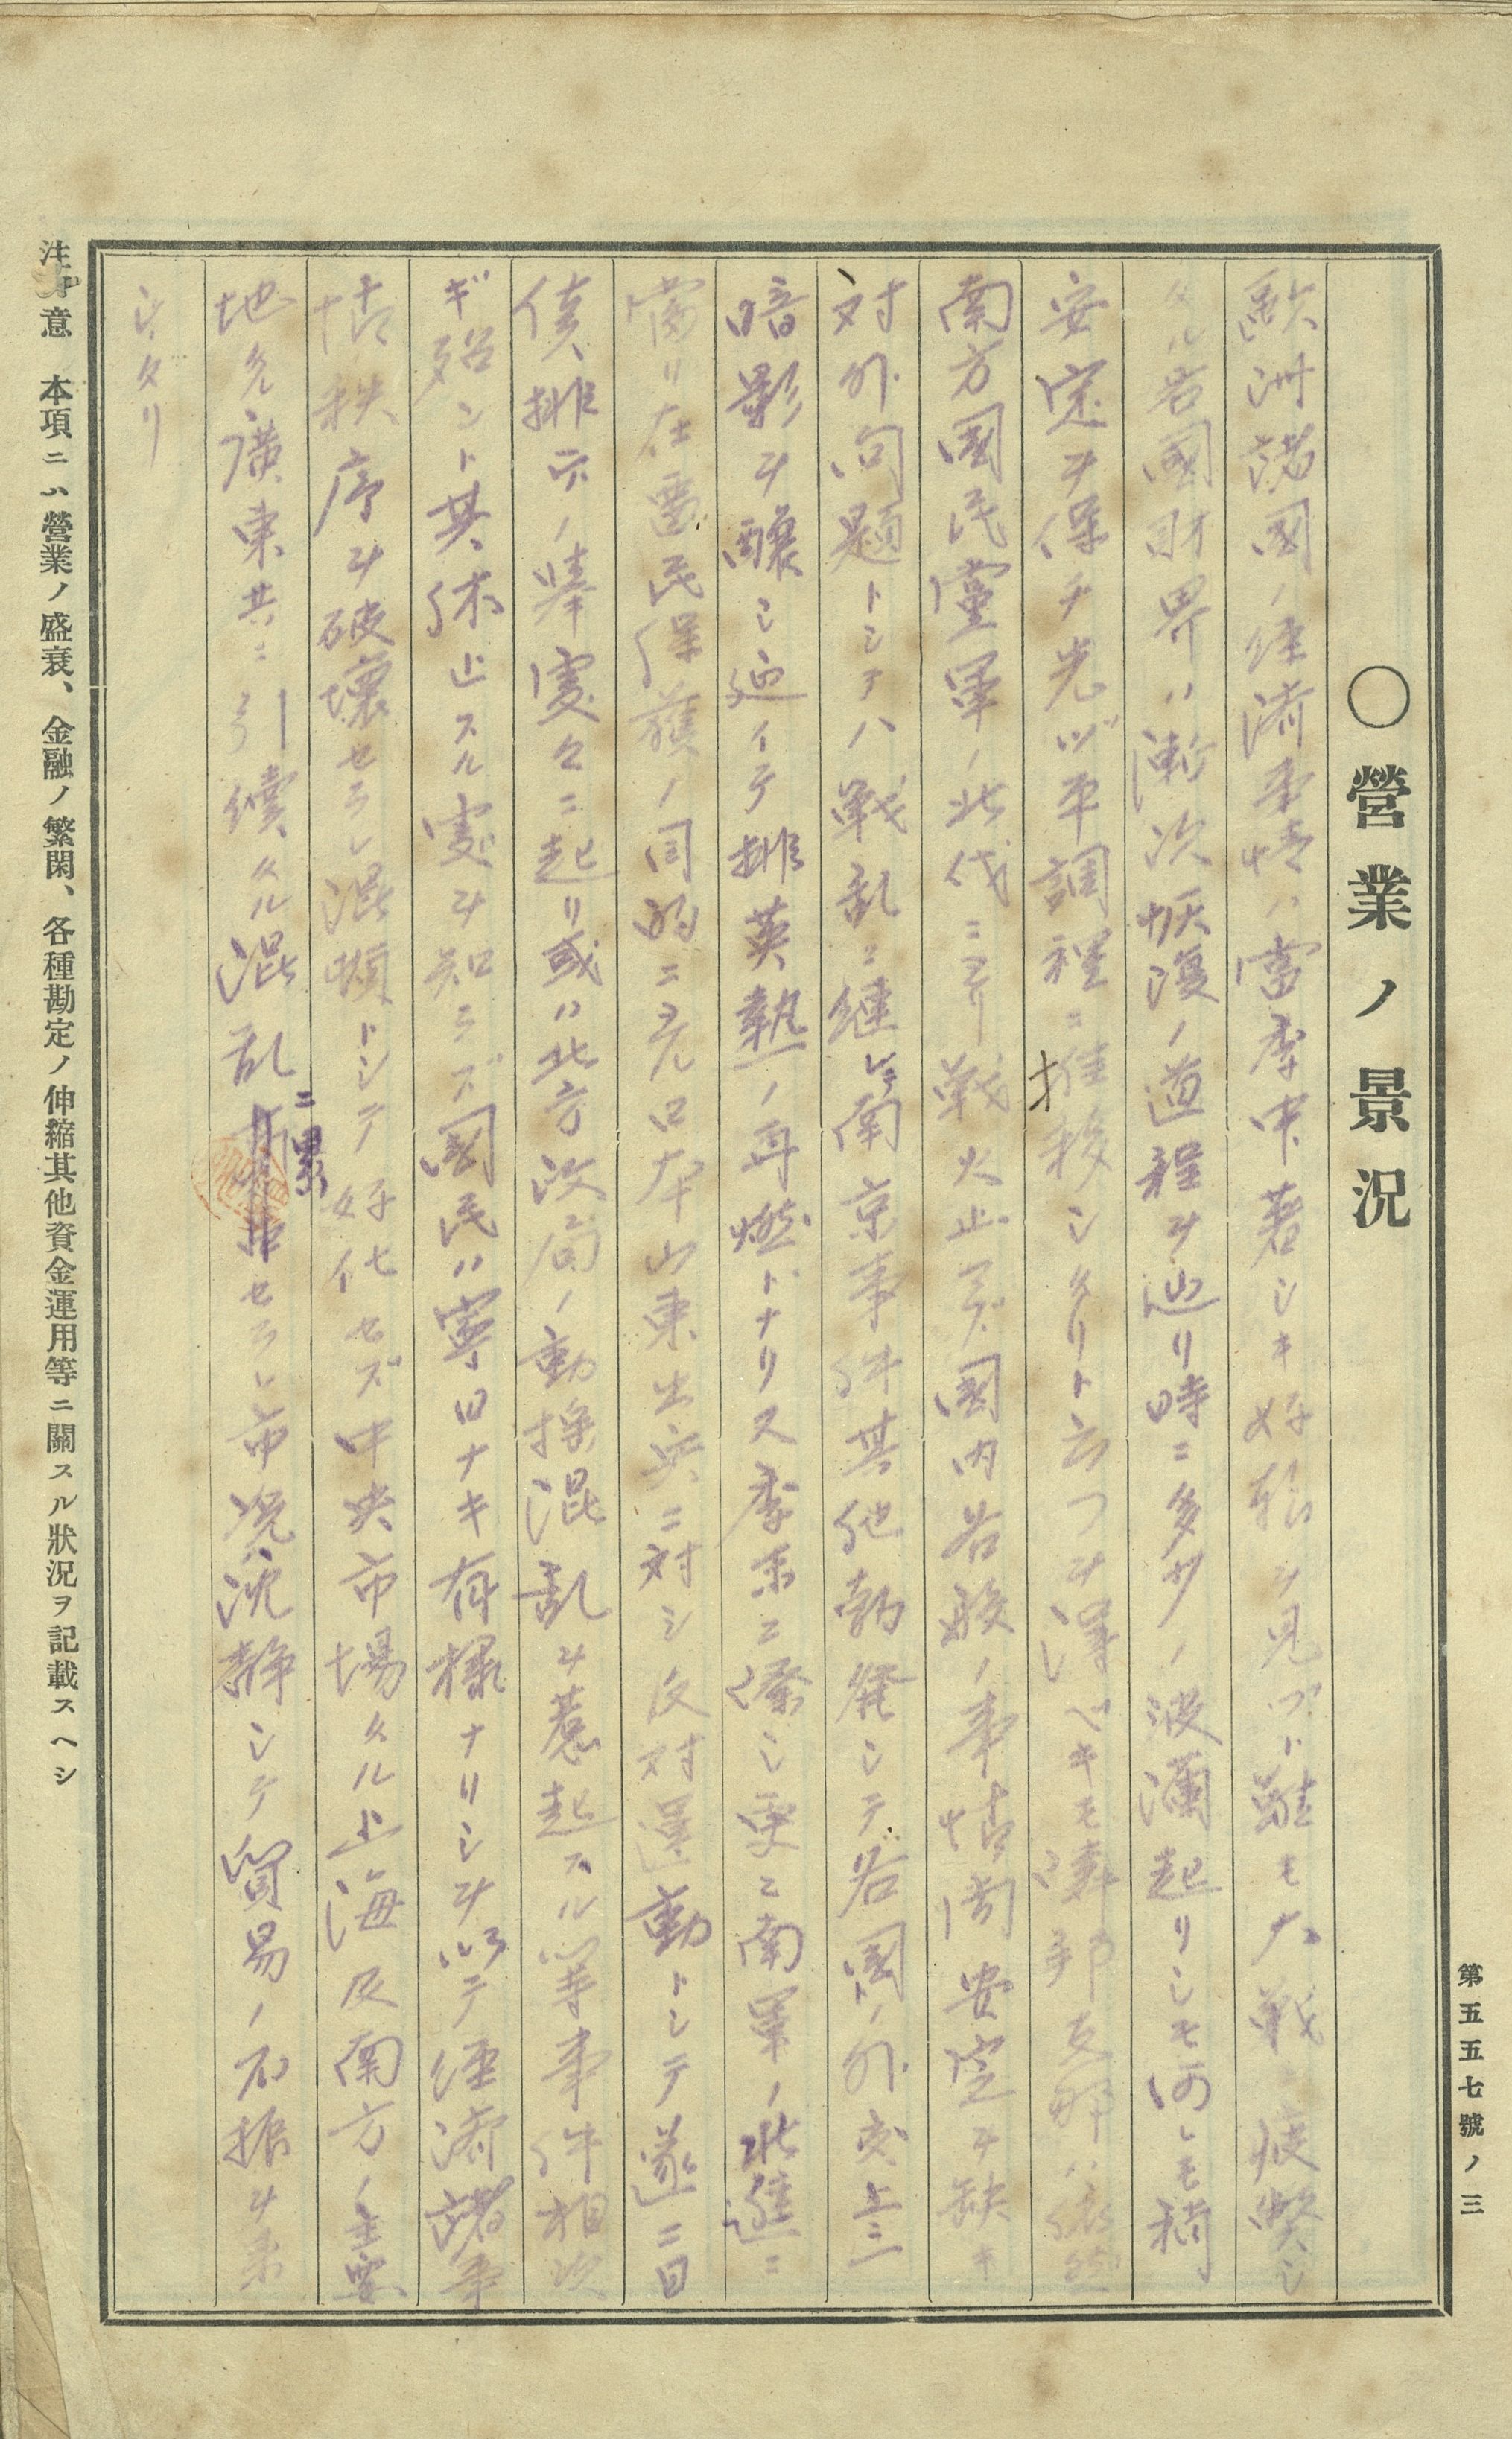 第五五七號ノ三
○營業ノ景況
歐洲諸國ノ經濟事情ハ當季中著シキ好転ヲ見ザルト雖モ大戰ニ疲弊シ
タル各國財界ハ漸次恢復ノ道程ヲ辿リ時ニ多少ノ波瀾起リシモ何レモ稍
安定ヲ保チ先ヅ平調裡ニ推移シタリト云フヲ得ベキモ隣邦支那ハ依然
南方國民黨軍ノ北伐ニ戰火止マズ國内各般ノ事情尚安定ヲ缺キ
対外問題トシテハ戰乱ニ継グ南京事件其他勃発シテ各國トノ外交上ニ
暗影ヲ釀シ延イテ排英熱ノ再燃トナリ又季末ニ際シ更ニ南軍ノ北進ニ
當リ在畱民保護ノ目的ニ出ル日本山東出兵ニ対シ反対運動トシテ遂ニ日
債排斥ノ擧處々ニ起リ或ハ北方政局ノ動搖混乱ヲ惹起スル等事件相次
ギ殆ンド其休止スル處ヲ知ラズ國民ハ寧日ナキ有様ナリシヲ以テ經濟諸事
情秩序ヲ破壞セラレ混頓トシテ好化セズ中央市場タル上海及南方ノ主要
地タル廣東共ニ引續タル混乱ニ累セラレ市況沈靜シテ貿易ノ不振ヲ来
シタリ
注意 本項ニハ營業ノ盛衰、金融ノ繁閑、各種勘定ノ伸縮其他資金運用等ニ關スル狀況ヲ記載スヘシ